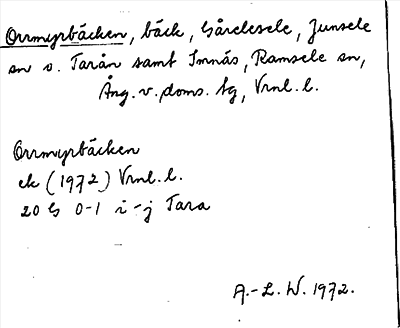 Orrmyrbäcken, bäck, Gårelesele, Junsele
sn o. Tarån samt Imnäs, Ramsele sn,
Ång. v. doms. tg, Vrnl. l.
Orrmyrbäcken
ek (1972) Vrnl. l.
20 G 0-1 i-j Tara
A.-L. W. 1972.